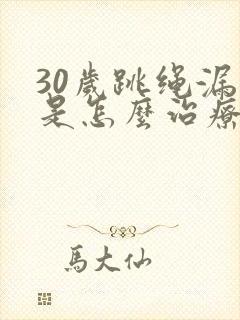 30歲跳绳漏
是怎麼治療
馬大仙